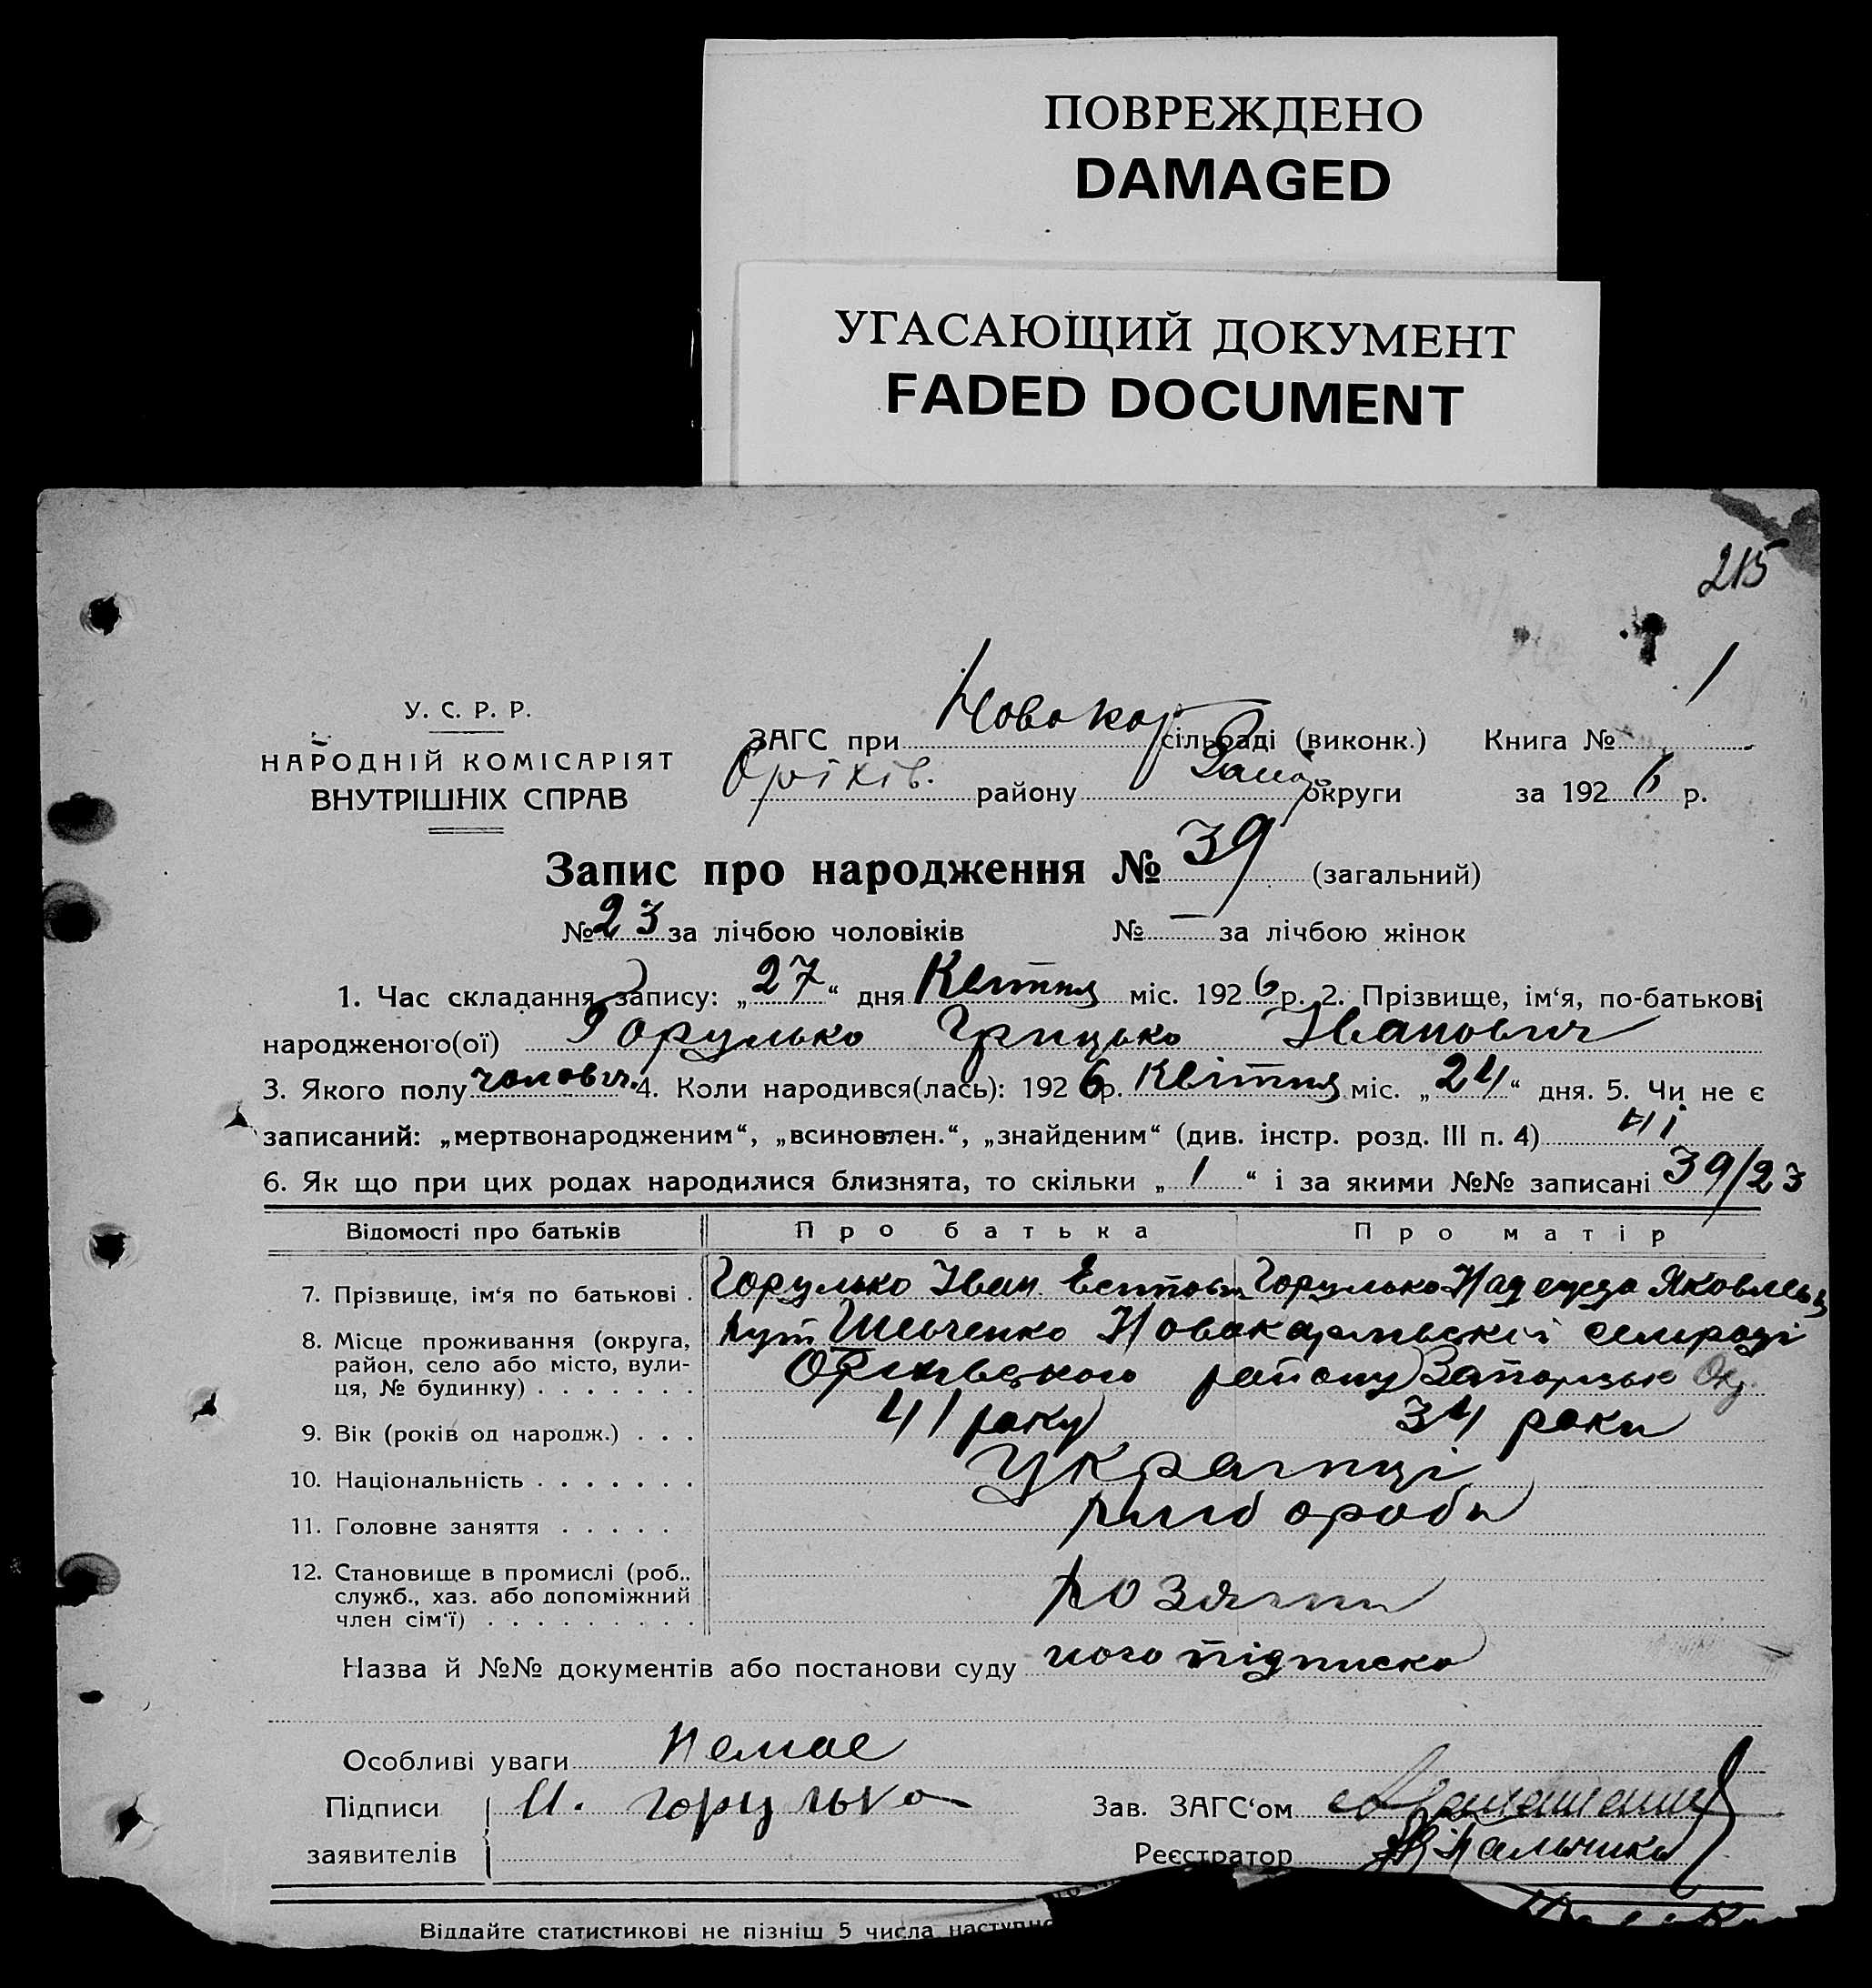 ПОВРЕЖДЕНО
DAMAGED
УГАСАЮЩИЙ ДОКУМЕНТ
FADED DOCUMENT
215
У. С. Р. Р.
НАРОДНІЙ КОМІСАРІЯТ
ВНУТРІШНІХ СПРАВ
ЗАГС при Новокар сільраді (виконк.) Книга № 1
Оріхів. району Запор округи за 1926 р.
Запис про народження № 39 (загальний)
№ 23 за лічбою чоловіків № — за лічбою жінок
1. Час складання запису: „27“ дня Квітня міс. 1926 р. 2. Прізвище, ім‘я, по-батькові
народженого(ої) Горулько Грицько Іванович
3. Якого полу чоловіч. 4. Коли народився(лась): 1926 р. Квітня міс. „24“ дня. 5. Чи не є
записаний: „мертвонародженим“, „всиновлен.“, „знайденим“ (див. інстр. розд. III п. 4) ні
6. Як що при цих родах народилися близнята, то скільки „1“ і за якими №№ записані 39/23
Відомості про батьків Про батька Про матір
7. Прізвище, ім‘я по батькові . Горулько Іван Горулько Надежда Яковлевн
8. Місце проживання (округа, район, село або місто, вулиця, № будинку) . . . . . . .
хут Шевченко Новокарльвській сельраді
Оріхівського району Запорізьк Окр.
9. Вік (років од народж.) . . . 41 року 34 роки
10. Національність . . . . . . . Українці
11. Головне заняття . . . . . хлібороби
12. Становище в промислі (роб., служб., хаз. або допоміжний член сім‘ї) . . . . . . . . . хозяини
Назва й №№ документів або постанови суду його підписка
Особливі уваги Немає
Підписи заявителів И. Горулько
Зав. ЗАГС‘ом
Реєстратор Пальчика
Віддайте статистикові не пізніш 5 числа наступно